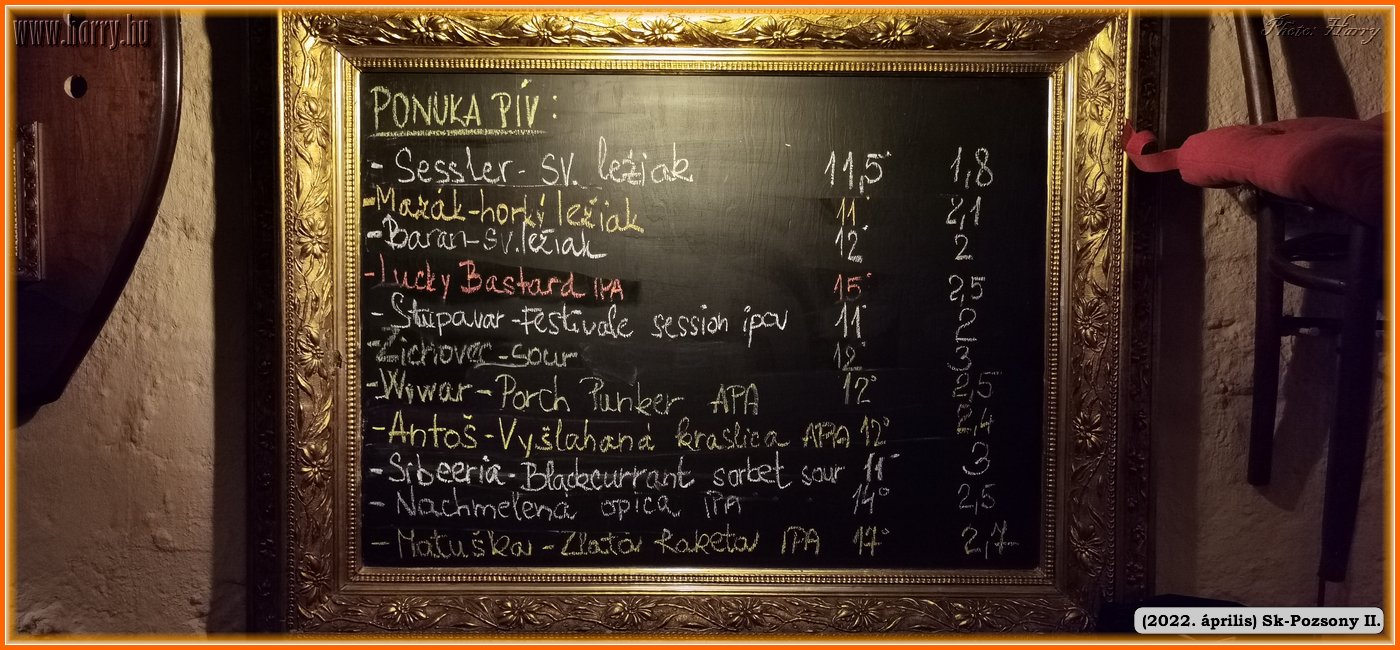 www.horry.hu
Photo: Horry
PONUKA PÍV:
- Sessler - SV. ležiak 11,5° 1,8
- Mazák - horký ležiak 11° 2,1
- Baran - sv. ležiak 12° 2
- Lucky Bastard IPA 15° 2,5
- Stupavar - Festivale session ipcv 11° 2
- Zichovec - sour 12° 3
- Wywar - Porch Punker APA 12° 2,5
- Antoš - Vyšlahaná kraslica APA 12° 2,4
- Sibeeria - Blackcurrant sorbet sour 11° 3
- Nachmelená opica IPA 14° 2,5
- Matuška - Zlatá Raketa IPA 17° 2,7
(2022. április) Sk-Pozsony II.